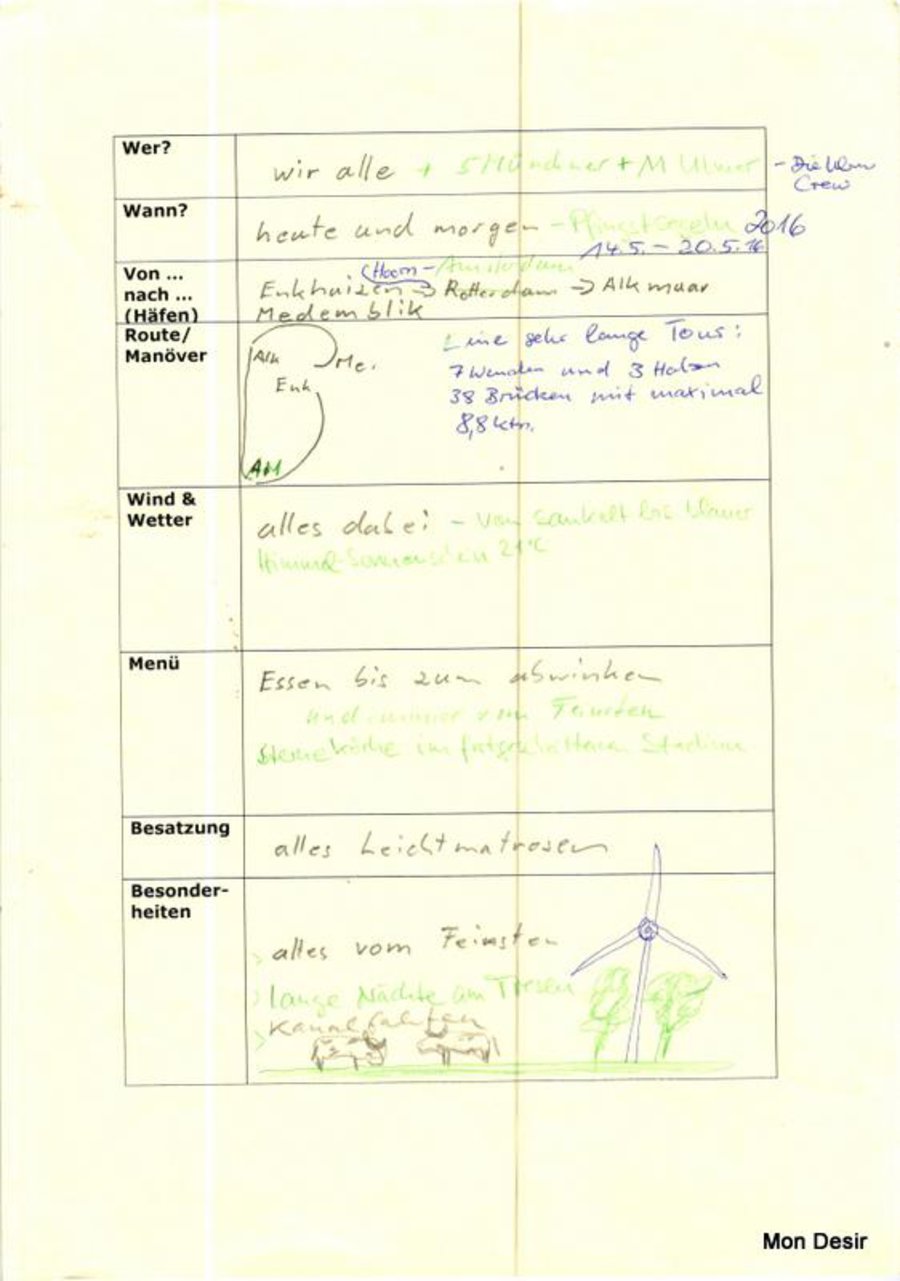 Wer?
wir alle + 5 Münchner + M Ulmer - Die Ulmer
Crew
Wann?
heute und morgen - Pfingstsegeln 2016
14.5. - 20.5.16
Von ...
nach ...
(Häfen)
(Hoorn - Amsterdam
Enkhuizen → Rotterdam → Alkmaar
Medemblik
Route/
Manöver
Alk
Me.
Enk
AM
Eine sehr lange Tour:
7 Wenden und 3 Halsen
38 Brücken mit maximal
8,8 ktn.
Wind &
Wetter
alles dabei - von saukalt bis blauer
Himmel-Sonnenschein 21°C
Menü
Essen bis zum abwinken
und immer vom Feinsten
Sterneküche im fortgeschrittenen Stadium
Besatzung
alles Leichtmatrosen
Besonder-
heiten
> alles vom Feinsten
> lange Nächte am Tresen
> Kanalfahrten
Mon Desir